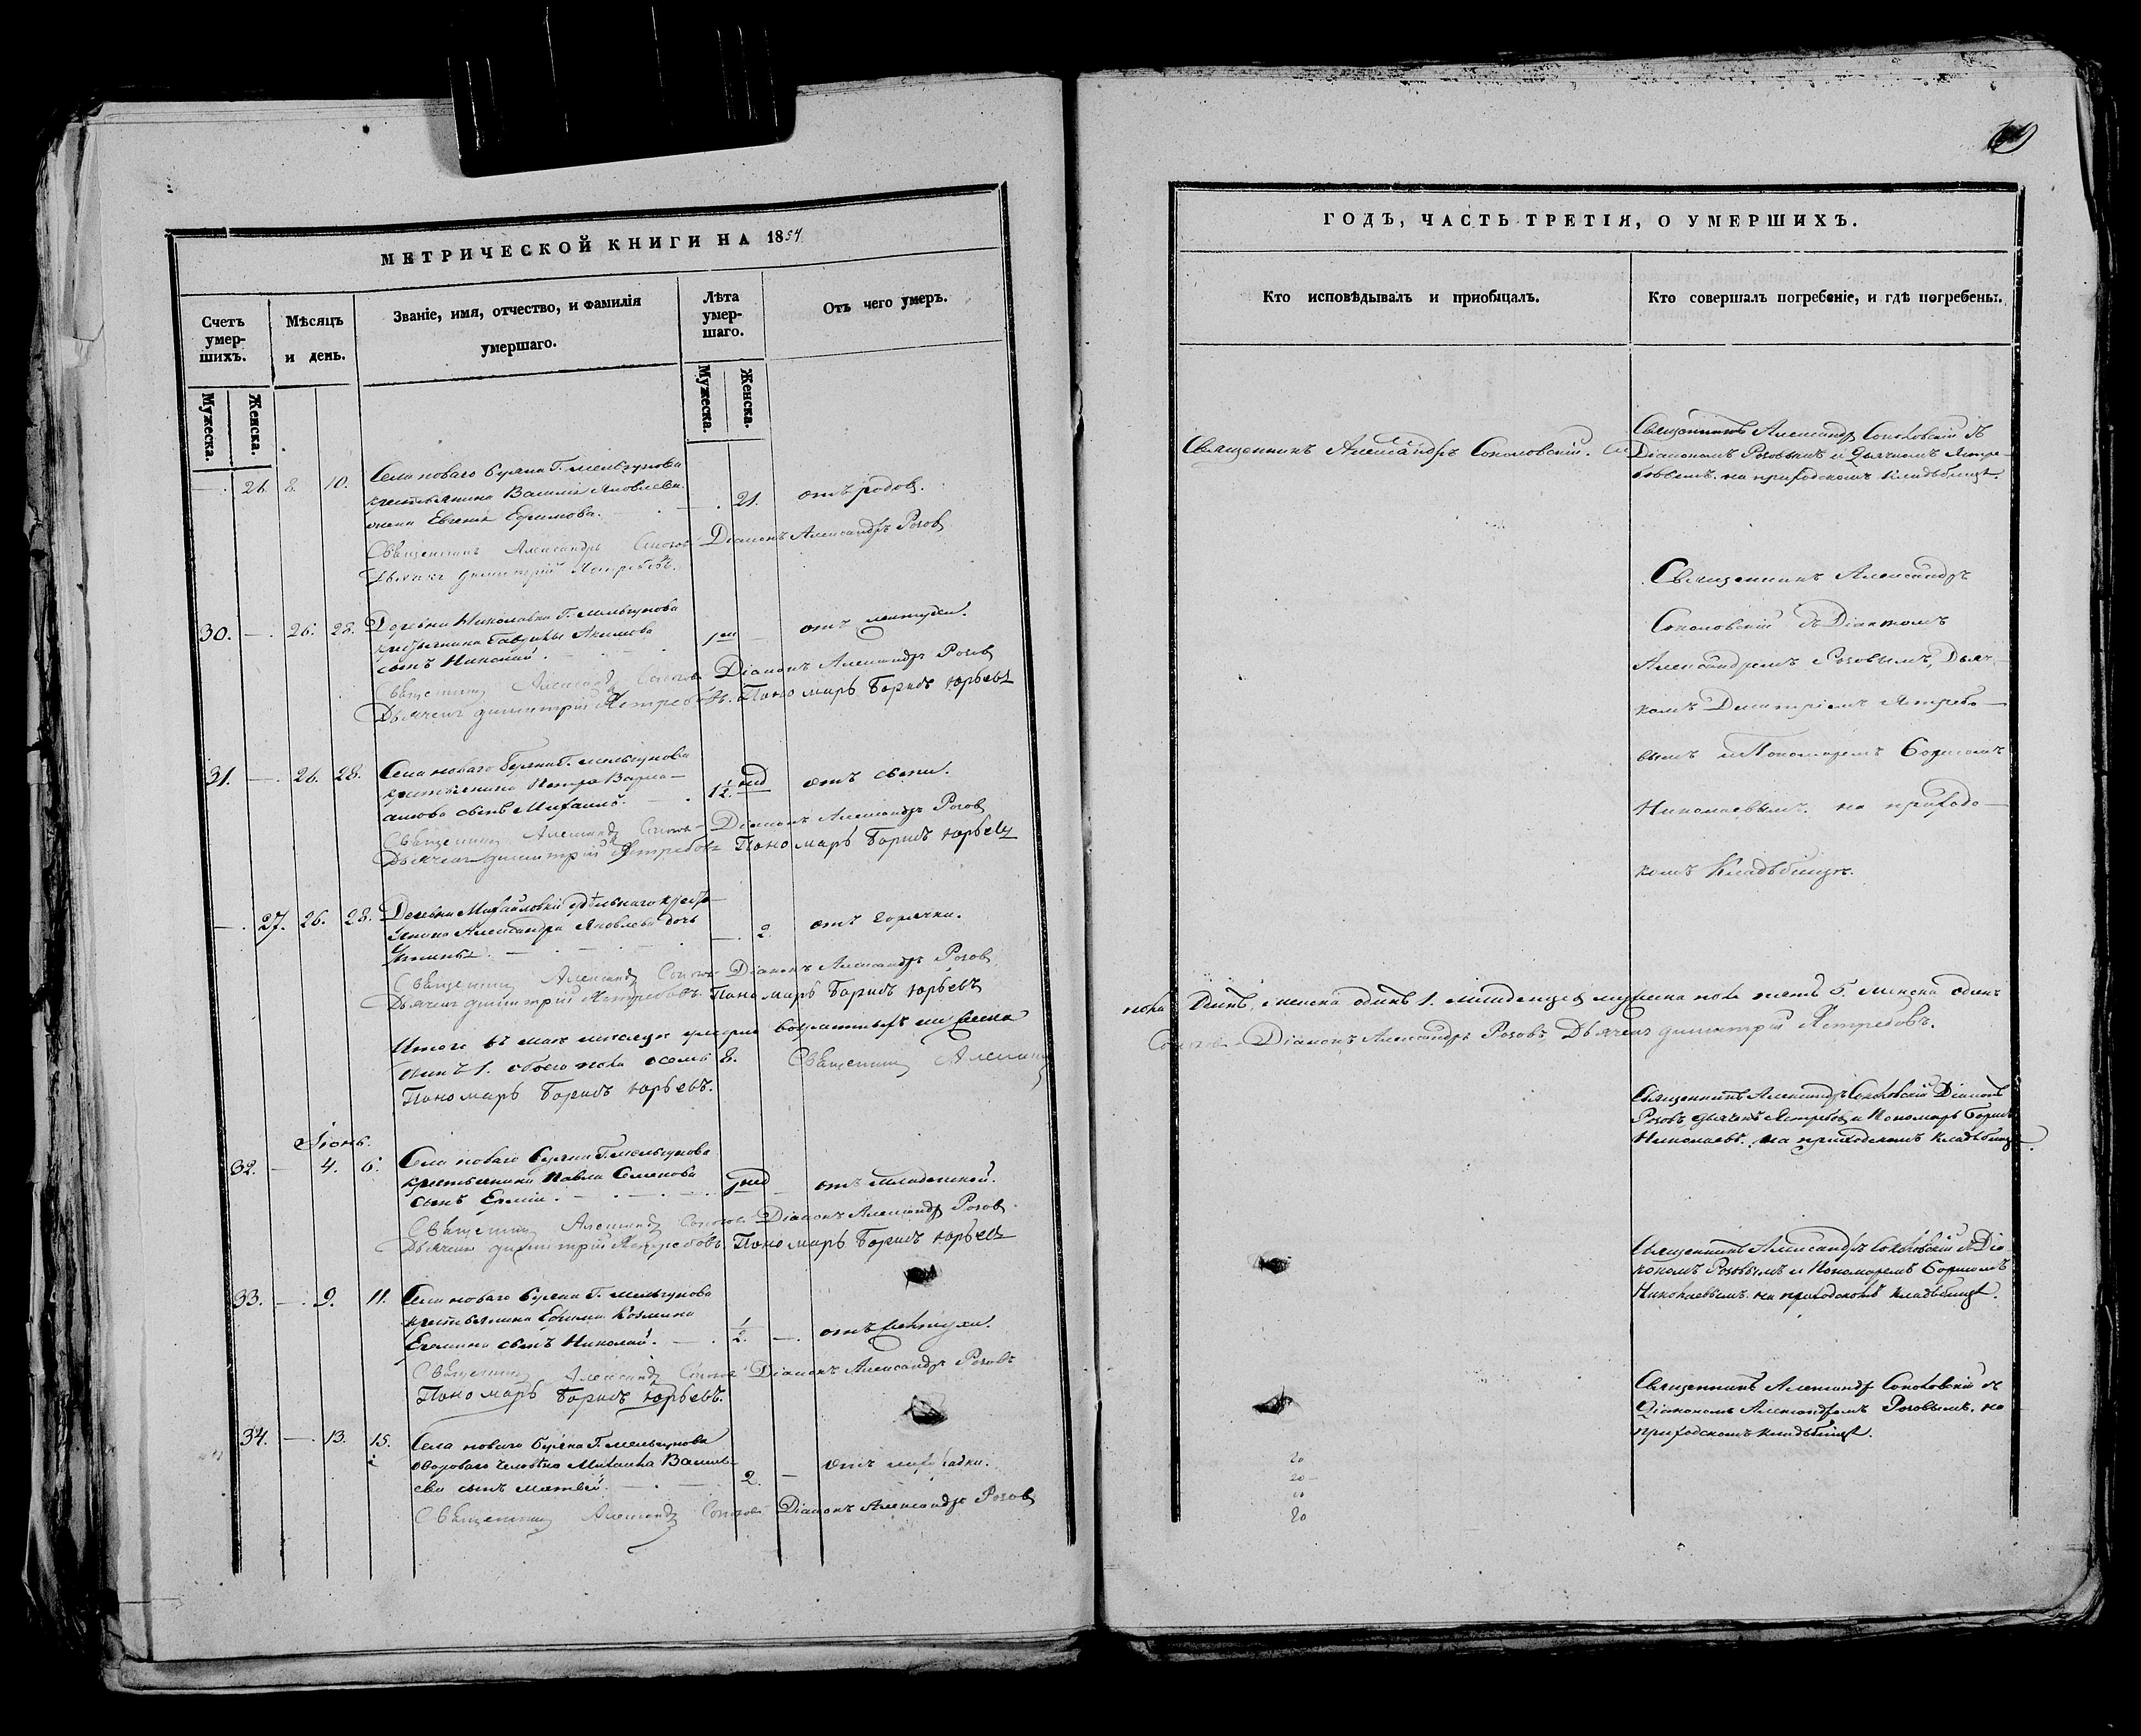 69
МЕТРИЧЕСКОЙ КНИГИ НА 1854
Счетъ умер-
шихъ.
Мѣсяцъ
и день.
Званіе, имя, отчество, и фамилія
умершаго.
Лѣта
умер-
шаго.
Отъ чего умеръ.
Мужеска.
Женска.
Мужеска.
Женска.
26. 8. 10. Села новаго Буяна Г. Мельгунова
крестьянина Василія Яковлева
жена Евгенія Ефимова. 21. отъ родовъ.
Священникъ Александръ Діаконъ Александръ Розовъ
Дьячекъ Димитрій Ястребовъ.
30. 26. 28. Деревни Николаевки Г. Мельгунова
крестьянина Акимова
сынъ Николай.
Священникъ Александръ Діаконъ Александръ Розовъ
Дьячекъ Димитрій Ястребовъ. Пономарь Борисъ Юрьевъ
31. 26. 28. Села новаго Буяна Г. Мельгунова
крестьянина Петра Варла-
амова сынъ Михаилъ. 1½ нед отъ
Священникъ Александръ Діаконъ Александръ Розовъ
Дьячекъ Димитрій Ястребовъ Пономарь Борисъ Юрьевъ
27. 26. 28. Деревни Михайловки удѣльнаго крестьянина Александра Яковлева дочь
2. отъ горячки.
Священникъ Александръ Діаконъ Александръ Розовъ
Дьячекъ Димитрій Ястребовъ. Пономарь Борисъ Юрьевъ
Итого въ маѣ мѣсяцѣ умерло возрастныхъ мужеска
1. обоего пола осемь 8. Священникъ
Пономарь Борисъ Юрьевъ.
Іюнь.
32. 4. 6. Села новаго Буяна Г. Мельгунова
крестьянина Павла Семенова
сынъ нед отъ младенской.
Священникъ Александръ Діаконъ Александръ Розовъ
Дьячекъ Димитрій Ястребовъ. Пономарь Борисъ Юрьевъ
33. 9. 11. Села новаго Буяна Г. Мельгунова
крестьянина Ефима Козмина
сынъ Николай. ½.
Священникъ Александръ Діаконъ Александръ Розовъ
Пономарь Борисъ Юрьевъ.
34. 13. 15. Села новаго Буяна Г. Мельгунова
двороваго человѣка Михаила Василь-
ева сынъ Матвѣй. 2. отъ лихорадки.
Священникъ Александръ Діаконъ Александръ Розовъ
ГОДЪ, ЧАСТЬ ТРЕТІЯ, О УМЕРШИХЪ.
Кто исповѣдывалъ и пріобщалъ.
Кто совершалъ погребеніе, и гдѣ погребены.
Священникъ Александръ Соколовскій.
Священникъ Александръ Соколовскій съ
Діакономъ Розовымъ и Дьячкомъ Ястре-
бовымъ. на приходскомъ кладбищѣ.
Священникъ Александръ
Соколовскій съ Діакономъ
Александромъ Розовымъ, Дьяч-
комъ Димитріемъ Ястребо-
вымъ и Пономаремъ Борисомъ
Николаевымъ. на приход-
комъ кладбищѣ.
пола одинъ, женска одинъ 1. младенцевъ мужеска пола пять 5. женска одинъ
Діаконъ Александръ Розовъ Дьячекъ Димитрій Ястребовъ.
Священникъ Александръ Соколовскій Діаконъ
Розовъ дьячекъ Ястребовъ и Пономарь Борисъ
Николаевъ. на приходскомъ кладбищѣ.
Священникъ Александръ Соколовскій съ Діа-
кономъ Розовымъ и Пономаремъ Борисомъ
Николаевымъ. на приходскомъ кладбищѣ.
Священникъ Александръ Соколовскій съ
Діакономъ Александромъ Розовымъ. на
приходскомъ кладбищѣ.